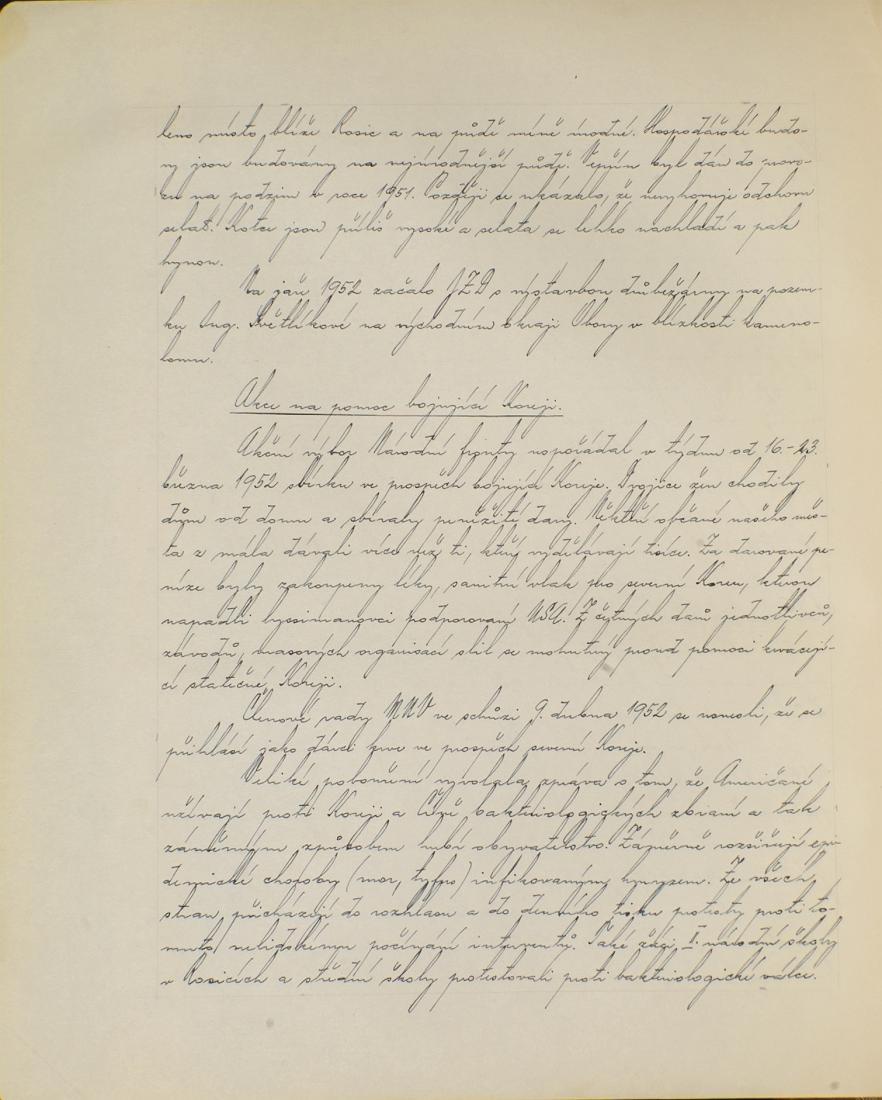 leno místo blíže Rosic a na půdě méně úrodné. Hospodářské budo-
vy jsou budovány na nejúrodnější půdě. Vepřín byl dán do provo-
zu na podzim v roce 1951. Později se ukázalo, že nevyhovuje odchovu
selat. Kotce jsou příliš vysoké a selata se lehko nachladí a pak
hynou.
Na jaře 1952 začalo JZD s výstavbou drůbežárny na pozem-
ku Ing. Světlíkové na východním okraji Obory v blízkosti kameno-
lomu.
Akce na pomoc bojující Koreji.
Akční výbor Národní fronty uspořádal v týdnu od 16.-23.
března 1952 sbírku ve prospěch bojující Koreje. Dvojice žen chodily
dům od domu a sbíraly peněžité dary. Někteří občané našeho měs-
ta z mála dávali více než ti, kteří vydělávají tisíce. Za darované pe-
níze byly zakoupeny léky, sanitní vlak pro severní Koreu, kterou
napadli lysimanovci podporovaní USA. Z četných darů jednotlivců,
závodů, masových organisací slil se mohutný proud pomoci krvácejí-
cí statečné Koreji.
Členové rady MNV ve schůzi 9. dubna 1952 se usnesli, že se
přihlásí jako dárci krve ve prospěch severní Koreje.
Veliké pobouření vyvolala zpráva o tom, že Američané
užívají proti Koreji a Číně bakteriologických zbraní a tak
záměrným způsobem hubí obyvatelstvo. Záměrně rozšiřují epi-
demické choroby (mor, tyfus) infikovaným hmyzem. Ze všech
stran přicházejí do rozhlasu a do denního tisku protesty proti to-
muto nelidskému počínání interventů. Také žáci II. národní školy
v Rosicích a střední školy protestovali proti bakteriologické válce.